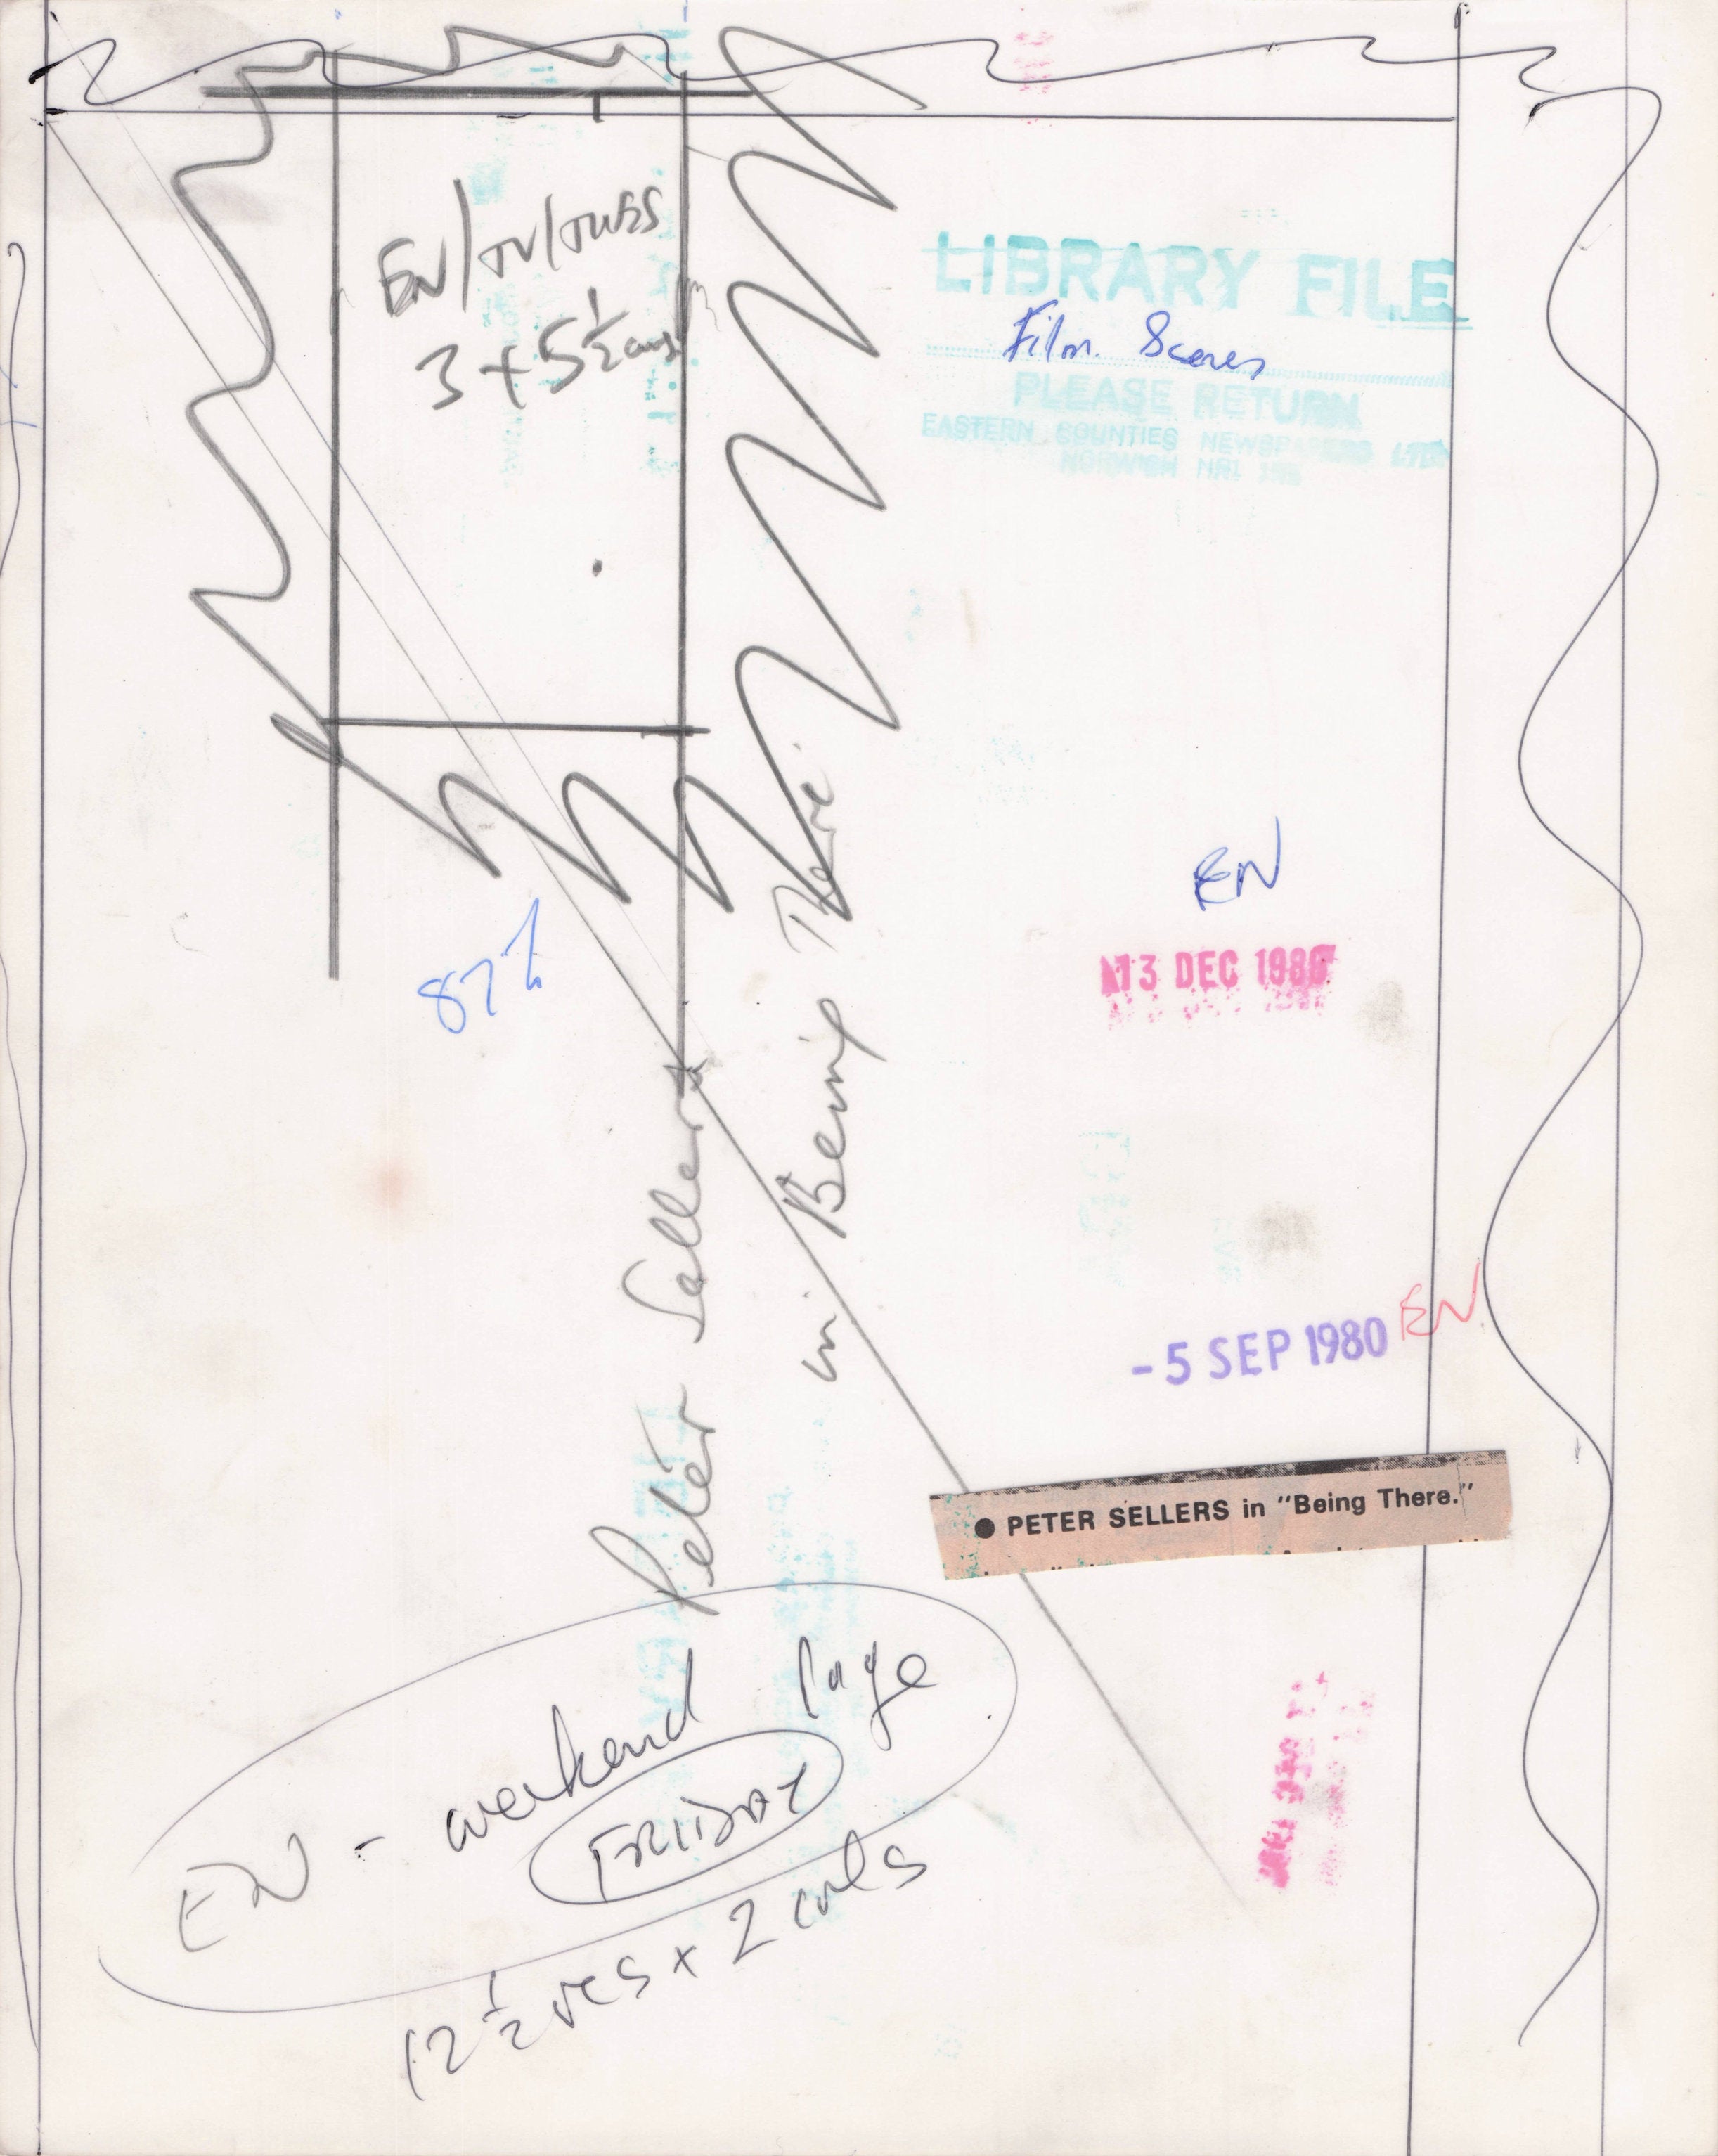 EN/TV/TUES
3 x 5½ cms
LIBRARY FILE
Film Scenes
PLEASE RETURN
EASTERN COUNTIES NEWSPAPERS LTD
NORWICH NR1
EN
13 DEC 1980
Peter Sellers
in Being There
- 5 SEP 1980 EN
● PETER SELLERS in "Being There."
EN - weekend Page
FRIDAY
12½ x 2 cols